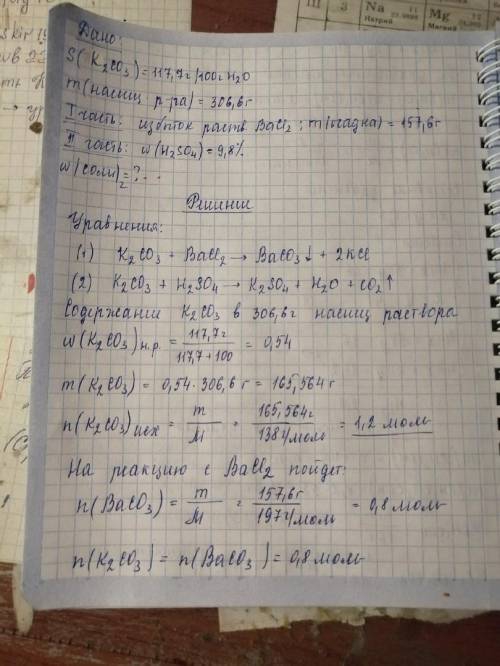 III 3 Na 11 Натрий Mg Магний
Дано
S(K₂CO₃) = 117,7г/100г H₂O
m(насыщ р-ра) = 306,6г
I часть: избыток раств. BaCl₂; m(осадка) = 157,6г
II часть: w(H₂SO₄) = 9,8%
w(соли)₂ = ? - -
Решение
Уравнения:
(1) K₂CO₃ + BaCl₂ → BaCO₃↓ + 2KCl
(2) K₂CO₃ + H₂SO₄ → K₂SO₄ + H₂O + CO₂↑
Содержание K₂CO₃ в 306,6г насыщ раствора
w(K₂CO₃)н.р. = 117,7г / 117,7+100 = 0,54
m(K₂CO₃) = 0,54 · 306,6г = 165,564г
n(K₂CO₃)исх = m / M = 165,564г / 138г/моль = 1,2 моль
На реакцию с BaCl₂ пойдет:
n(BaCO₃) = m / M = 157,6г / 197г/моль = 0,8 моль
n(K₂CO₃) = n(BaCO₃) = 0,8 моль